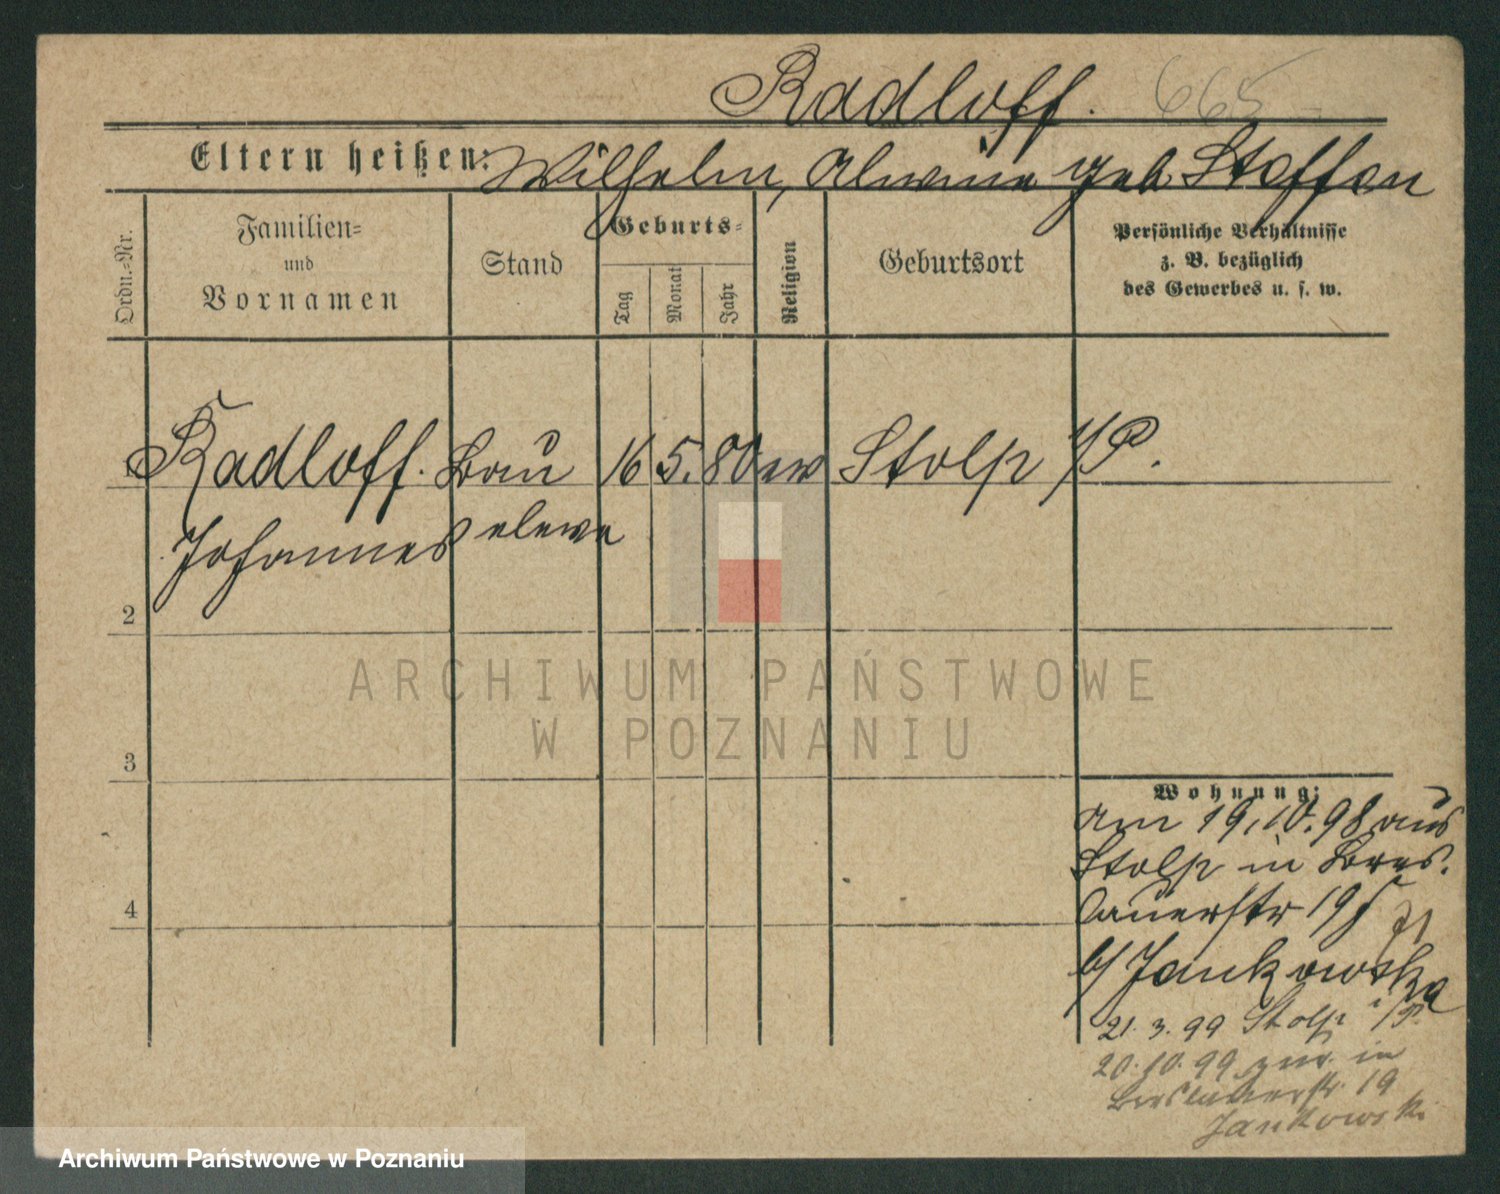 Radloff. 665
Eltern heißen: Wilhelm, Alwine geb Steffen
Ordn.-Nr.
Familien-
und
Vornamen
Stand
Geburts-
Tag
Monat
Jahr
Religion
Geburtsort
Persönliche Verhältnisse
z. B. bezüglich
des Gewerbes u. s. w.
1 Radloff. Bau 16 5. 80 ev Stolp i/P.
Johannes eleve
2
ARCHIWUM PAŃSTWOWE
W POZNANIU
3
Wohnung:
am 19.10.98 aus
Stolp in Bres.
lauerstr 19
b/ Jankowska
21.3.99 Stolp i/P.
20.10.99 zur. in
Breslauerstr. 19
Jankowski
4
Archiwum Państwowe w Poznaniu